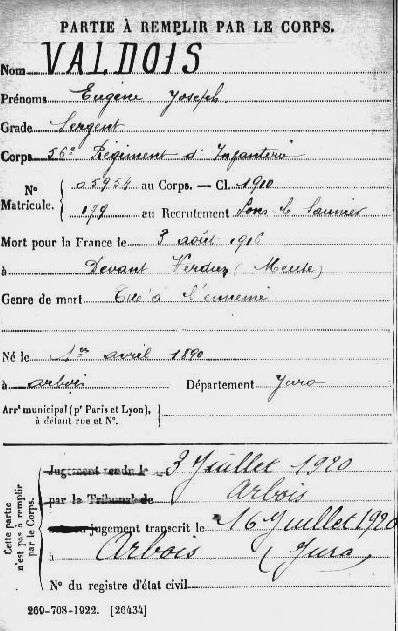 PARTIE À REMPLIR PAR LE CORPS.
Nom VALDOIS
Prénoms Eugène Joseph
Grade Sergent
Corps 56e Régiment d'Infanterie
N° Matricule. 05954 au Corps. — Cl. 1910
179 au Recrutement Lons le Saunier
Mort pour la France le 3 août 1916
à Devant Verdun (Meuse)
Genre de mort Tué à l'ennemi
Né le 1er avril 1890
à Arbois Département Jura
Arrt municipal (pr Paris et Lyon),
à défaut rue et N°.
Cette partie n'est pas à remplir par le Corps.
Jugement rendu le 3 Juillet 1920
par le Tribunal de Arbois
jugement transcrit le 16 Juillet 1920
Arbois (Jura)
N° du registre d'état civil
269-708-1922. [26434]